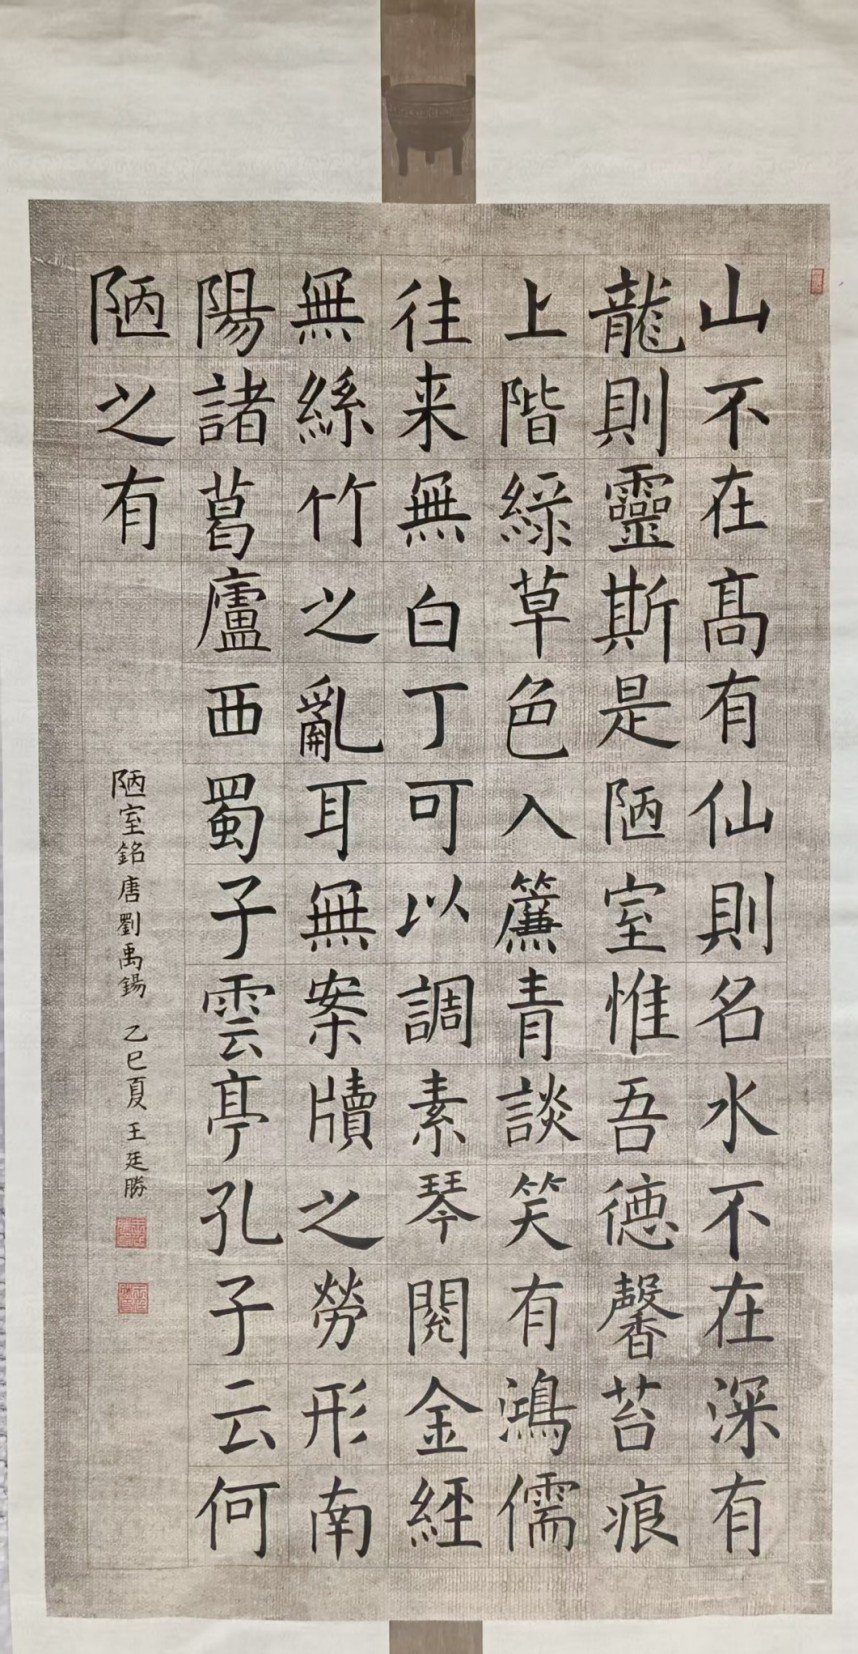 山不在髙有仙則名水不在深有
龍則靈斯是陋室惟吾徳馨苔痕
上階綠草色入簾青談笑有鴻儒
往来無白丁可以調素琴閱金經
無絲竹之亂耳無案牘之勞形南
陽諸葛廬西蜀子雲亭孔子云何
陋之有
陋室銘唐劉禹錫 乙巳夏王廷勝